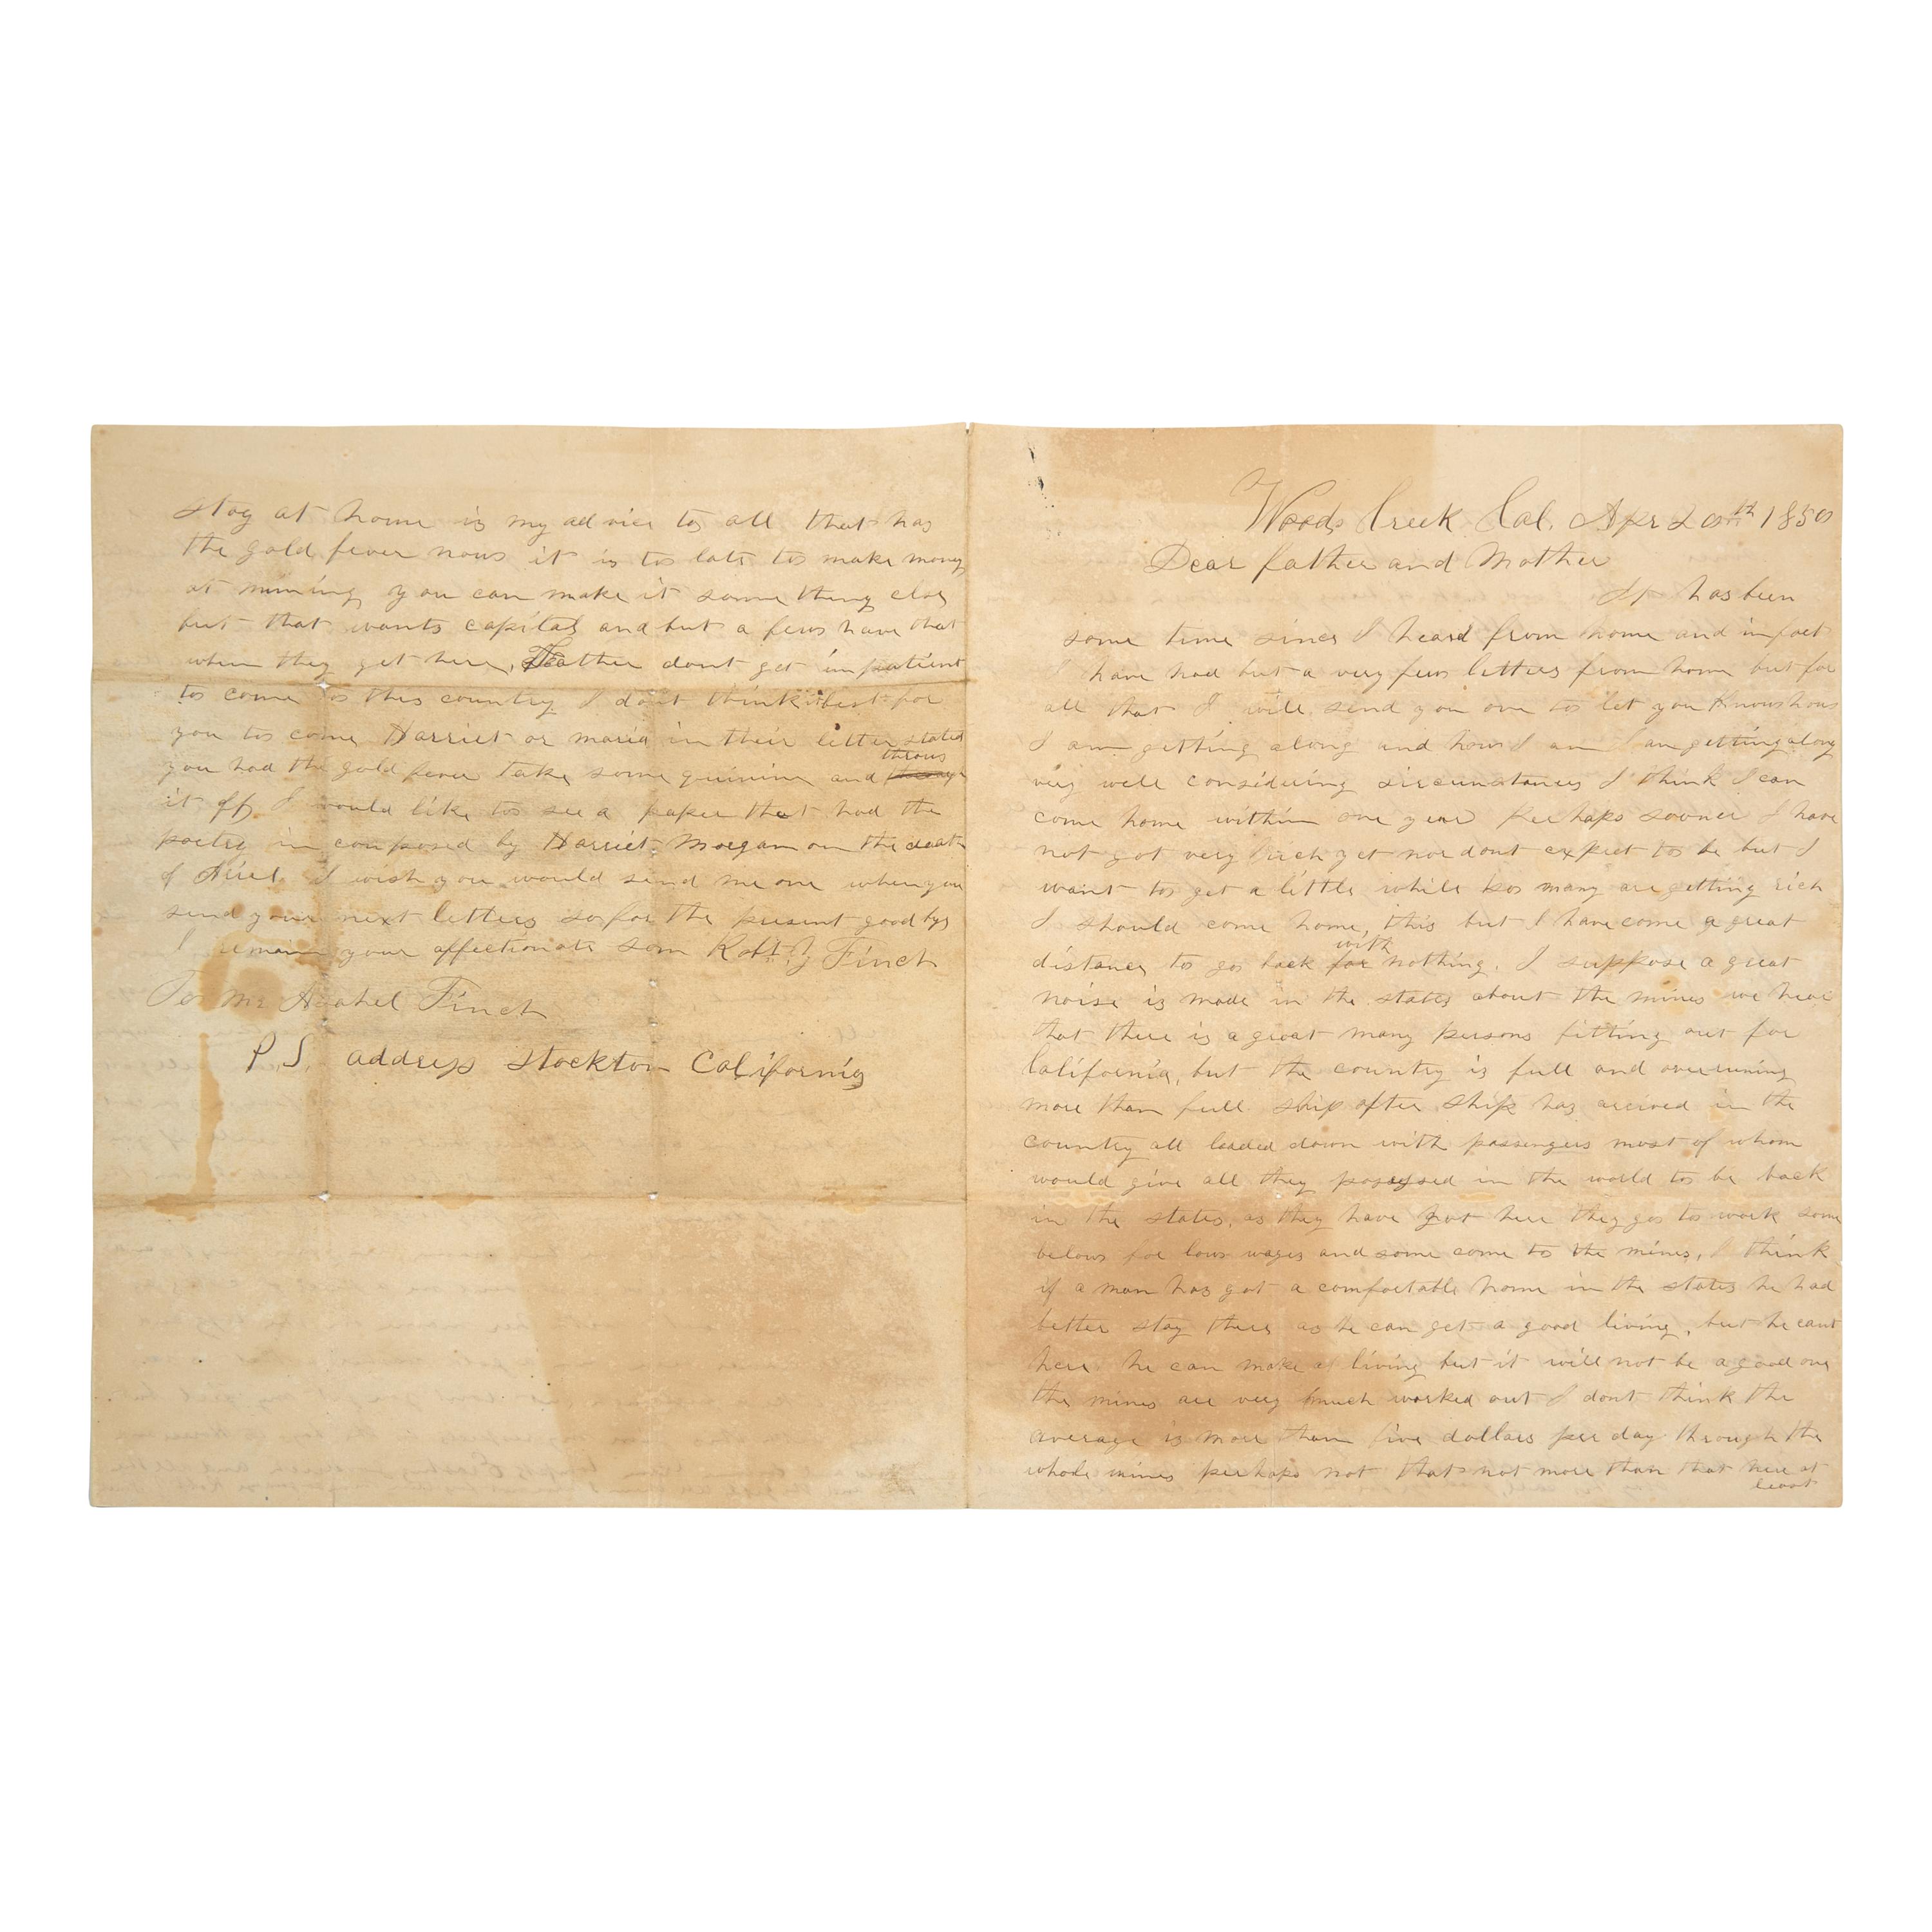 Woods Creek Cal. Apr 20th 1850
Dear father and Mother
It has been
some time since I heard from home and in fact
I have had but a very few letters from home but for
all that I will send you one to let you Know how
I am getting along and how I am I am getting along
very well considering circumstances I think I can
come home within one year Perhaps sooner I have
not got very rich yet nor dont expect to be but I
want to get a little while so many are getting rich
I should come home, this but I have come a great
distance to go back for with nothing. I suppose a great
noise is made in the states about the mines we hear
that there is a great many persons fitting out for
California, but the country is full and overruning
more than full ship after ship has arrived in the
country all loaded down with passengers most of whom
would give all they possessed in the world to be back
in the states, as they have got here they go to work some
below for low wages and some come to the mines, I think
if a man has got a comfortable home in the states he had
better stay there as he can get a good living, but he cant
here he can make a living but it will not be a good one
the mines are very much worked out I dont think the
average is more than five dollars per day through the
whole mines perhaps not that not more than that here at
least
stay at home is my advice to all that has
the gold fever now it is to late to make money
at mining you can make it some thing else
but that wants capital and but a few have that
when they get here, Father dont get impatient
to come to this country I dont think it best for
you to come Harriet or maria in their letter stated
you had the gold fever take some quinine and throw
it off I would like to see a paper that had the
poetry in composed by Harriet Morgan on the death
of I wish you would send me one when you
send your next letters so for the present good by
I remain your affectionate son Robt J Finch
To Mr Asahel Finch
P.S. address Stockton California